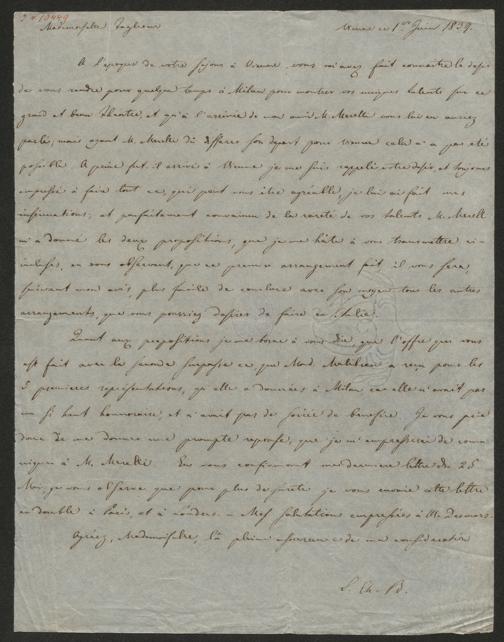 Mademoiselle Taglioni Vienne ce 1er Juin 1839.
A l'époque de votre séjour à Vienne, vous m'avez fait connaitre le desir
de vous rendre pour quelque temps à Milan pour montrer vos uniques talents sur ce
grand et beau théatre, et qu'à l'arrivée de mon ami M. Merelli vous lui en auriez
parlé, mais ayant M. Merelli dû differer son depart pour Vienne cela n'a pas été
possible. A peine fut-il arrivé à Vienne je me suis rappellé votre desir, et toujours
empressé à faire tout ce, qui peut vous être agréable, je lui ai fait mes
insinuations, et parfaitement convaincu de la rareté de vos talents M. Merelli
m'a donné les deux propositions, que je me hâte à vous transmettre ci-
incluses, en vous observant, que ce premier arrangement fait il vous sera,
suivant mon avis, plus facile de conclure avec son moyen tous les autres
arrangements, que vous pourriez desirer de faire en Italie.
Quant aux propositions je me borne à vous dire, que l'offre qui vous
est fait avec la seconde surpasse ce que Mad. Malibran a reçu pour les
premieres représentations, qu'elle a données à Milan car elle n'avait pas
un si haut honoraire, et n'avait pas de soirée de benefice. Je vous prie
donc de me donner une prompte reponse, que je m'empresserai de commu
niquer à M. Merelli. En vous confirmant ma derniere lettre du 25
Mai, je vous observe que pour plus de sureté je vous envoie cette lettre
en double à Paris, et à Londres. - Mes salutations empressées à M.
Agréez, Mademoiselle, la pleine assurance de ma consideration